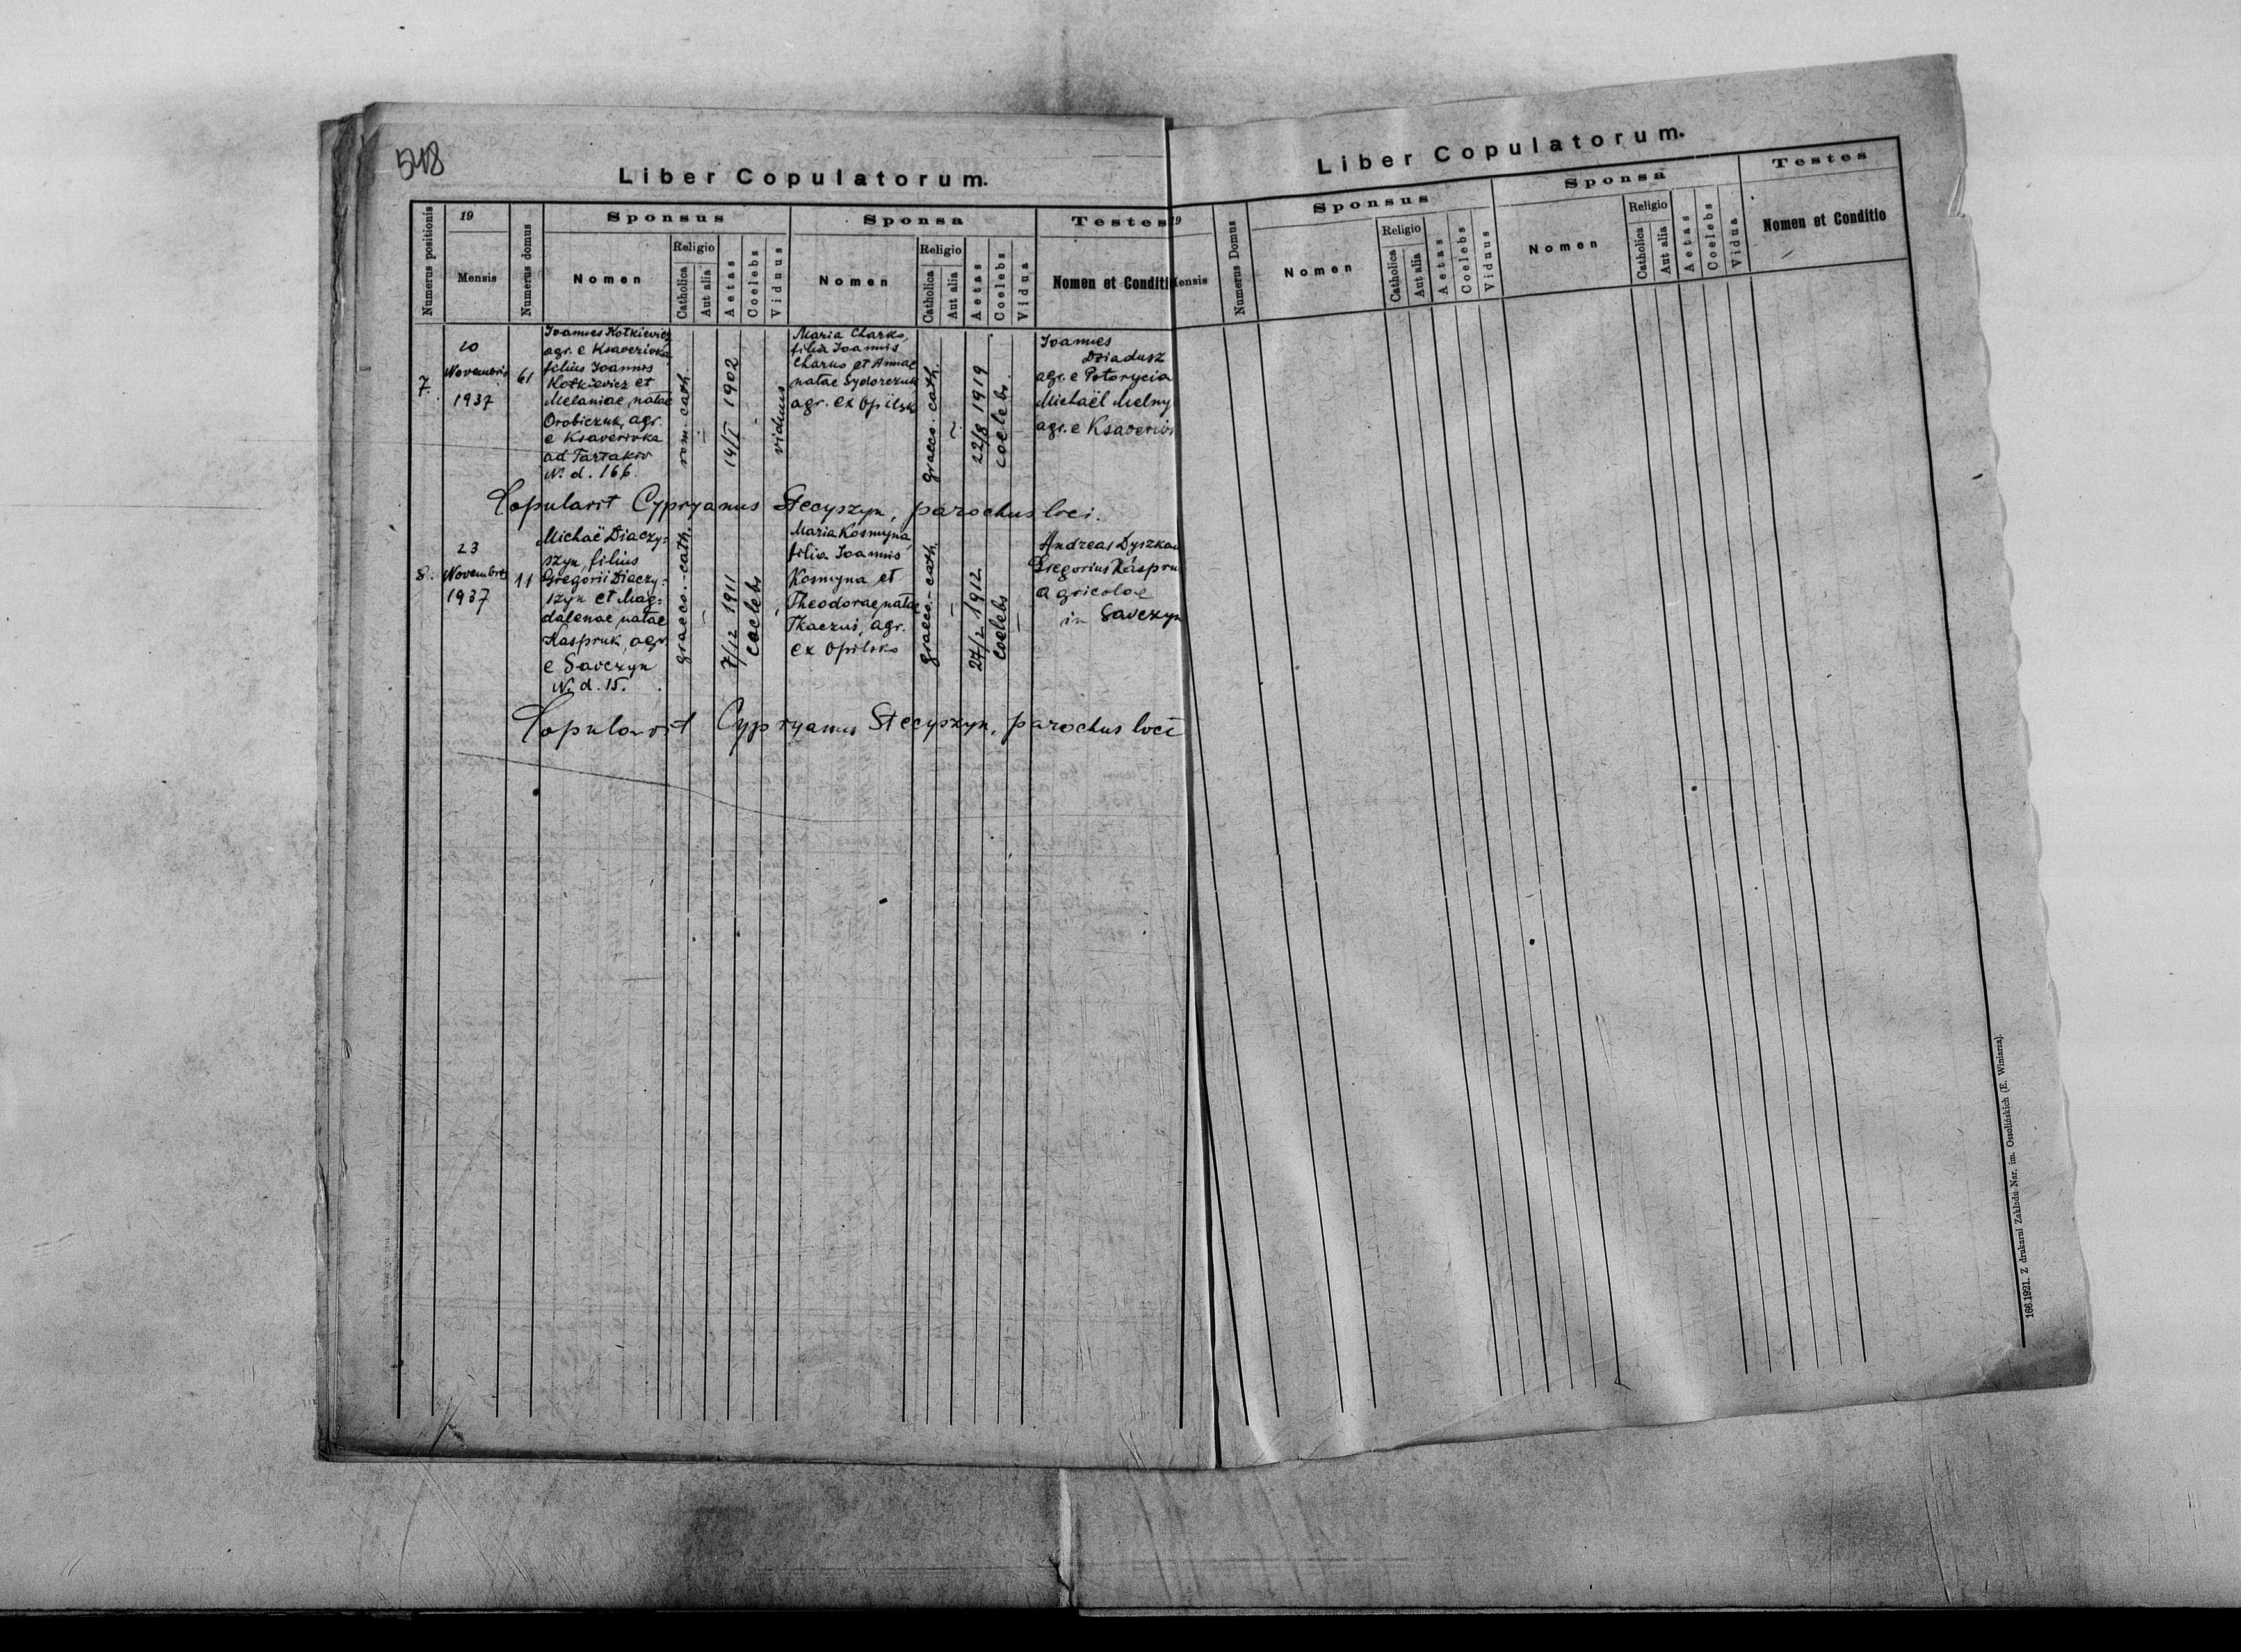 548
Liber Copulatorum.
Numerus positionis
19
Mensis
Numerus domus
Sponsus
Nomen
Religio
Catholica
Aut alia
Aetas
Coelebs
Viduus
Sponsa
Nomen
Religio
Catholica
Aut alia
Aetas
Coelebs
Vidua
Testes
Nomen et Conditi
7.
10
Novembris
1937
61
Ioannes Kotkiewicz
agr. e Ksaverivka
filius Ioannis
Kotkiewicz et
Melaniae, natae
Orobiczuk, agr.
e Ksaverivka
ad Tartakiv
N. d. 166.
rom.-cath.
14/I 1902
viduus
Maria Charko,
filia Ioannis
Charko et Annae
natae Sydorczuk
agr. ex Opilsk
graeco.-cath.
22/8 1919
coelebs
Ioannes
Dziadusz
agr. e Potorycia
Michaël Melny
agr. e Ksaveriv
Copulavit Cypryanus Stecyszyn, parochus loci.
8.
23
Novembris
1937
11
Michaë Diaczy-
szyn, filius
Gregorii Diaczy-
szyn et Mag-
dalenae, natae
Kaspruk, agr.
e Savczyn
N. d. 15.
graeco.-cath.
7/12 1911
coelebs
Maria Kosmyna,
filia Ioannis
Kosmyna et
Theodorae, natae
Tkaczuś, agr.
ex Opilsko
graeco.-cath.
27/2 1912
coelebs
Andreas Dyszkan
Gregorius Kaspru
agricolae
in Savczyn
Copulavit Cypryanus Stecyszyn, parochus loci
Liber Copulatorum.
19
ensis
Numerus Domus
Sponsus
Nomen
Religio
Catholica
Aut alia
Aetas
Coelebs
Viduus
Sponsa
Nomen
Religio
Catholica
Aut alia
Aetas
Coelebs
Vidua
Testes
Nomen et Conditio
166.1921. Z drukarni Zakładu Nar. im. Ossolińskich (E. Winiarza).